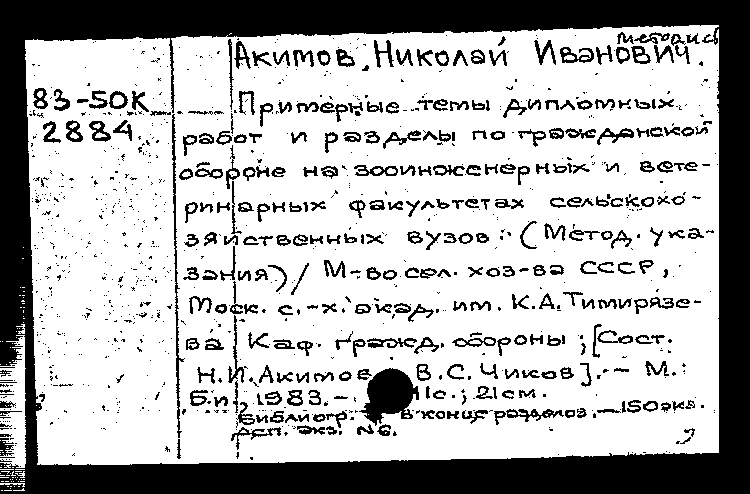 методист
Акимов, Николай Иванович.
83-50К
2884
Примерные темы дипломных
работ и разделы по гражданской
обороне на зооинженерных и вете-
ринарных факультетах сельскохо-
зяйственных вузов: (Метод. ука-
зания) / М-во сел. хоз-ва СССР,
Моск. с.-х. акад. им. К.А. Тимирязе-
ва, Каф. гражд. обороны; [Сост.
Н.И. Акимов, В.С. Чиков]. - М.:
Б.и., 1983. - 11с.; 21см.
Библиогр. в конце разделов. - 150экз.
Деп. экз. №6.